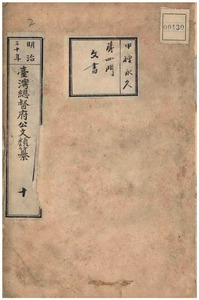 00130
甲種永久
第四門
文書
明治
三十年
臺灣總督府公文類纂
十